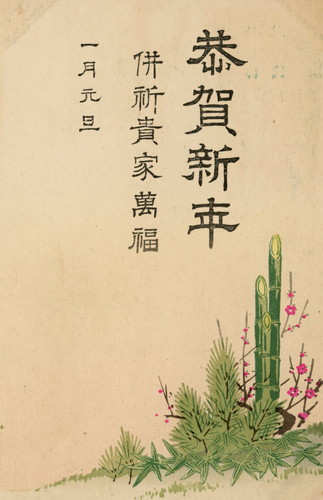 恭賀新年
併祈貴家萬福
一月元旦